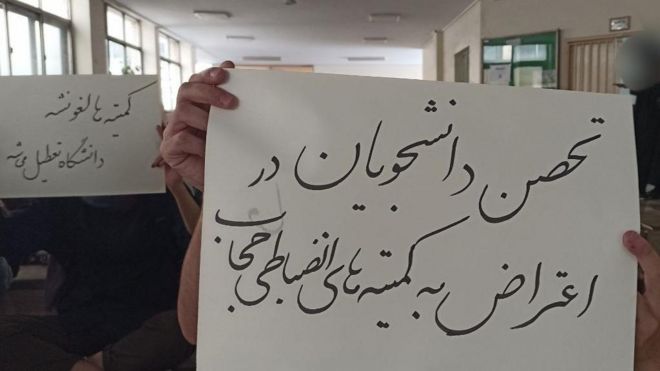 کمیته ها لغو نشه
دانشگاه تعطیل می‌شه
تحصن دانشجویان در
اعتراض به کمیته های انضباطی حجاب